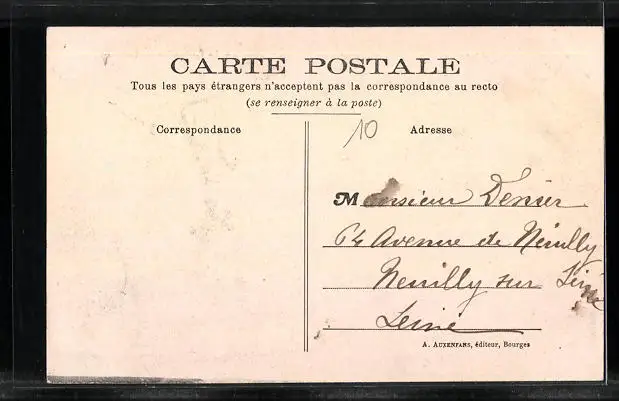 CARTE POSTALE
Tous les pays étrangers n'acceptent pas la correspondance au recto
(se renseigner à la poste)
Correspondance
10
Adresse
Monsieur Denier
64 Avenue de Neuilly
Neuilly sur Seine
Seine
A. AUXENFANS, éditeur, Bourges